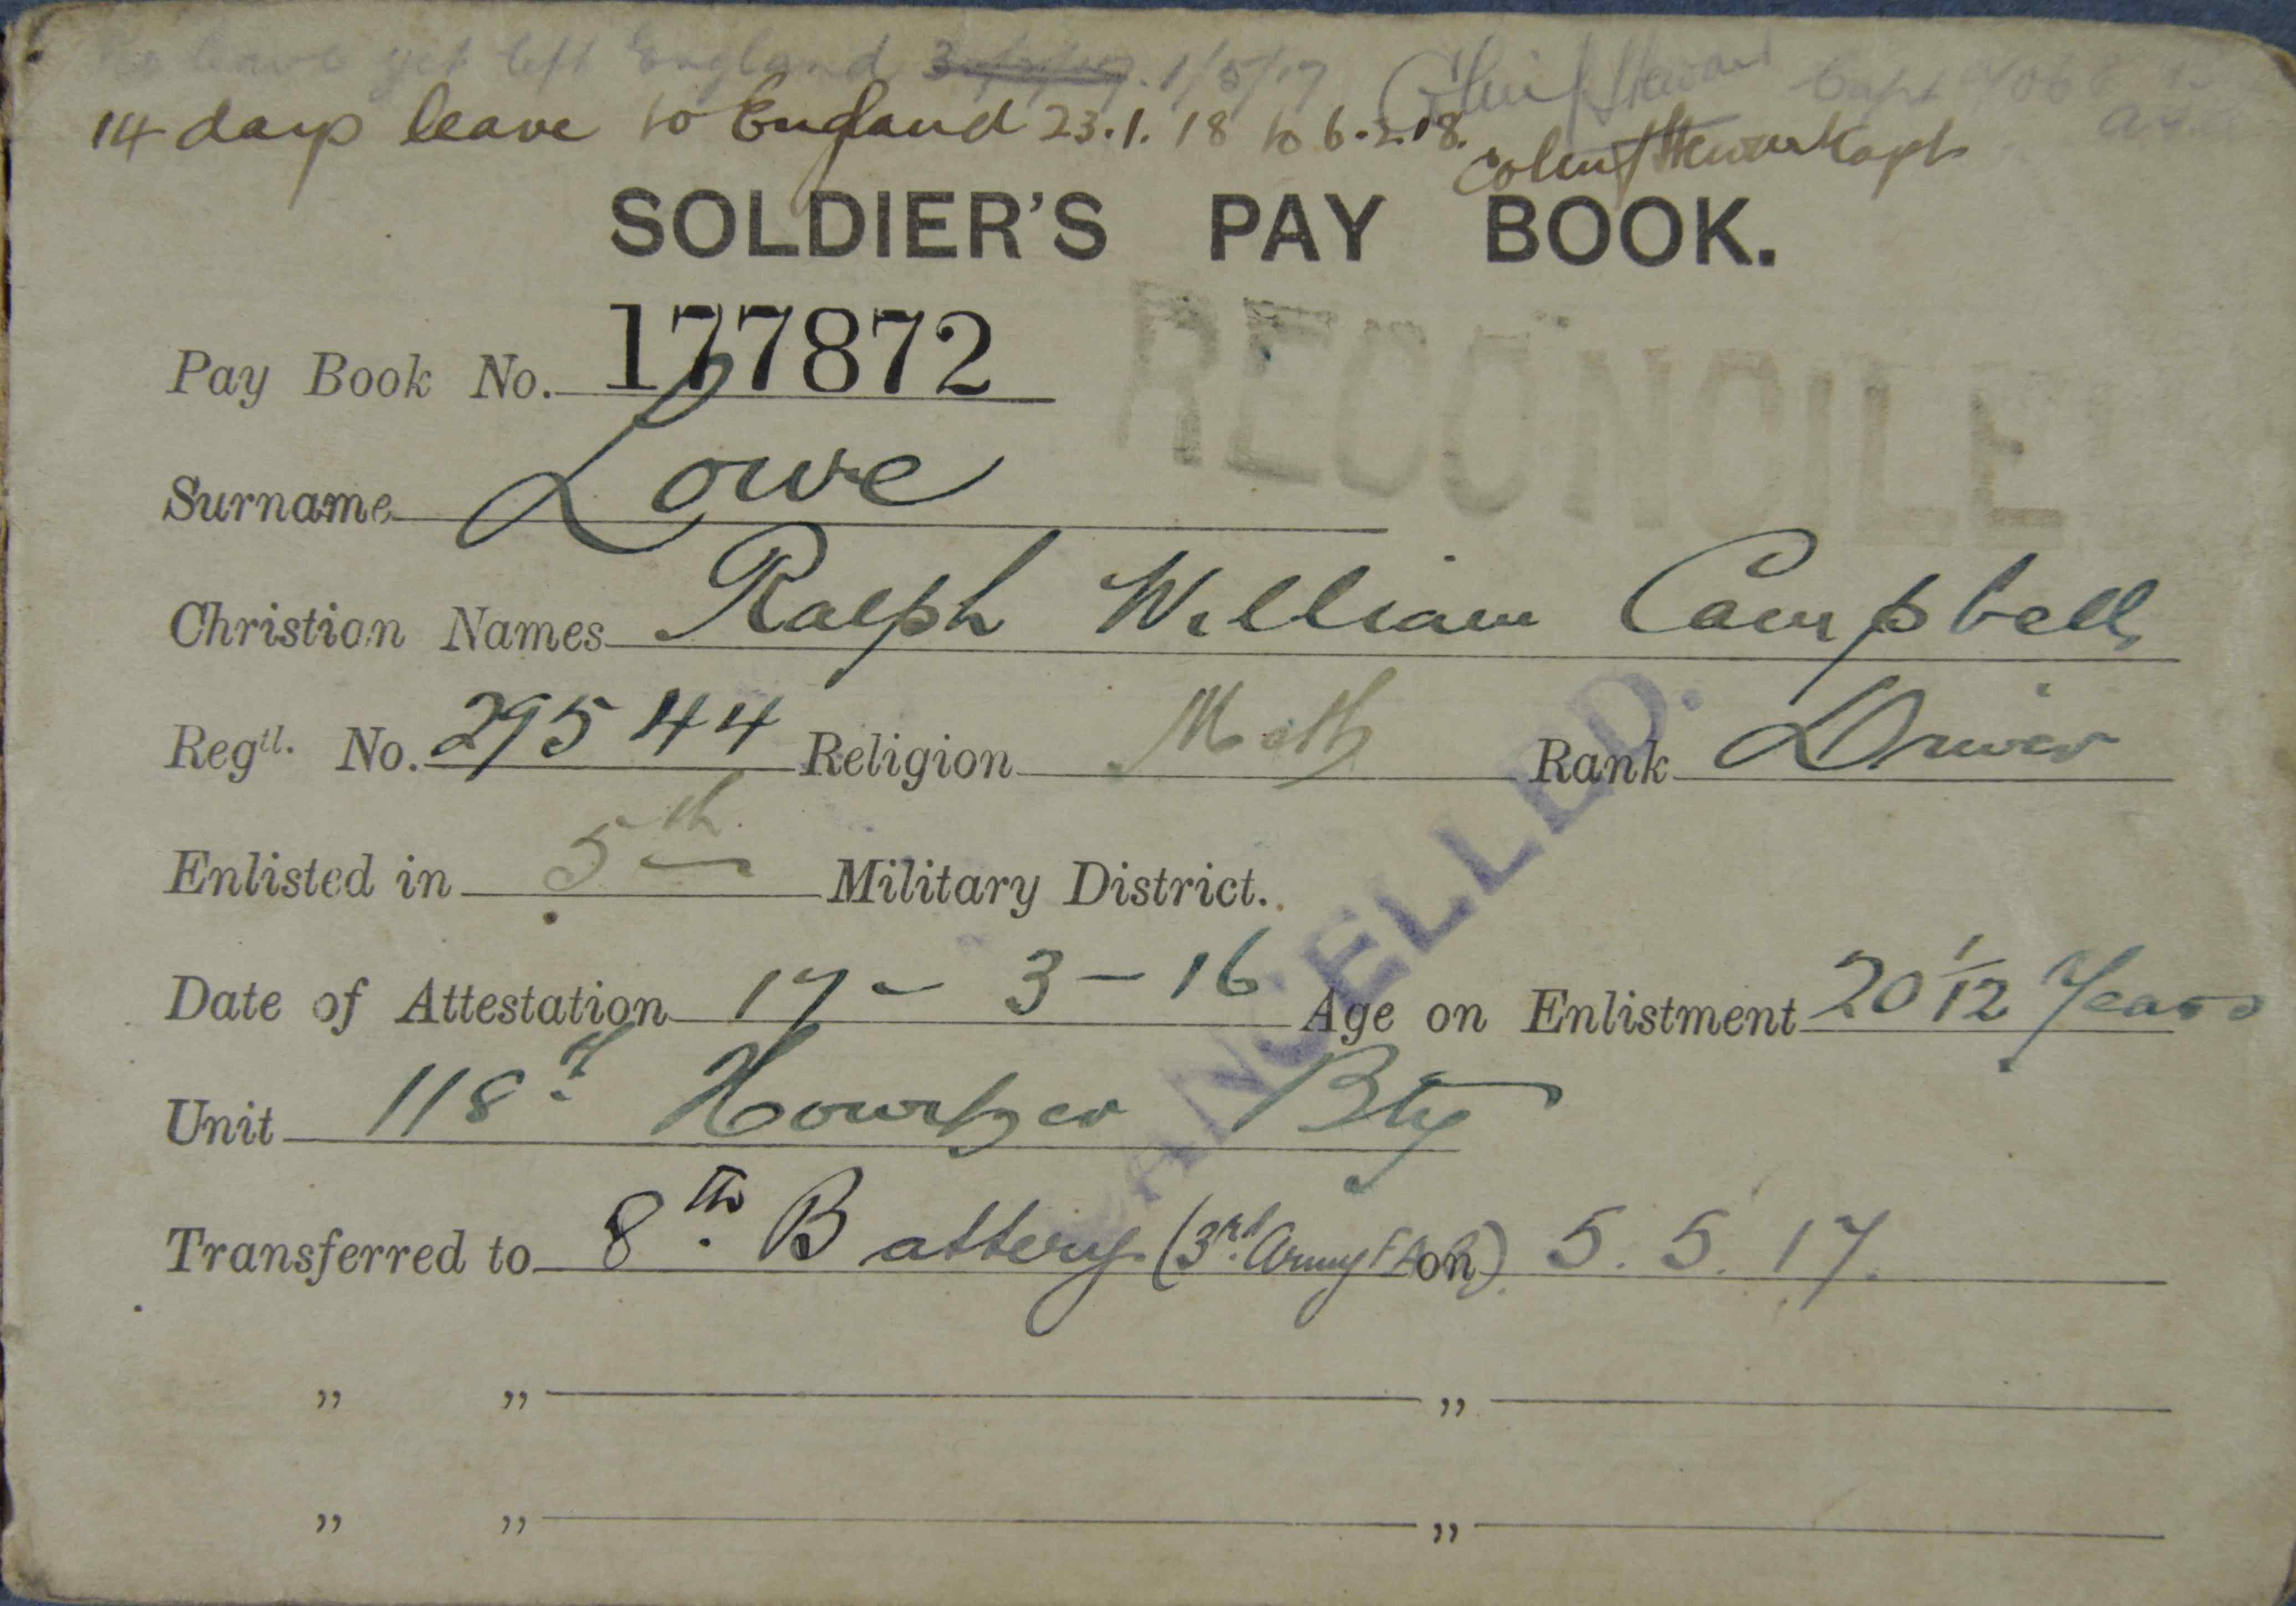 No leave yet left England 1/5/17 Colin J Stewart Capt
14 days leave to England 23.1.18 to 6.2.18. Colin J Stewart Capt
SOLDIER'S PAY BOOK.
RECONCILE
Pay Book No. 177872
Surname Lowe
Christian Names Ralph William Campbell
Regtl. No. 29544 Religion Meth Rank Driver
CANCELLED.
Enlisted in 5th Military District.
Date of Attestation 17-3-16 Age on Enlistment 20 1/12 Years
Unit 118th Howitzer Bty
Transferred to 8th Battery (3rd Army FAB) on 5.5.17.
" " "
" " "